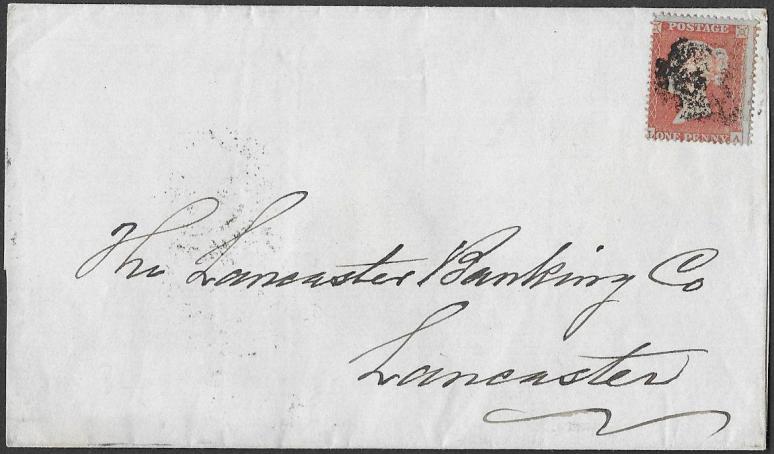 POSTAGE
ONE PENNY
A
The Lancaster Banking Co
Lancaster